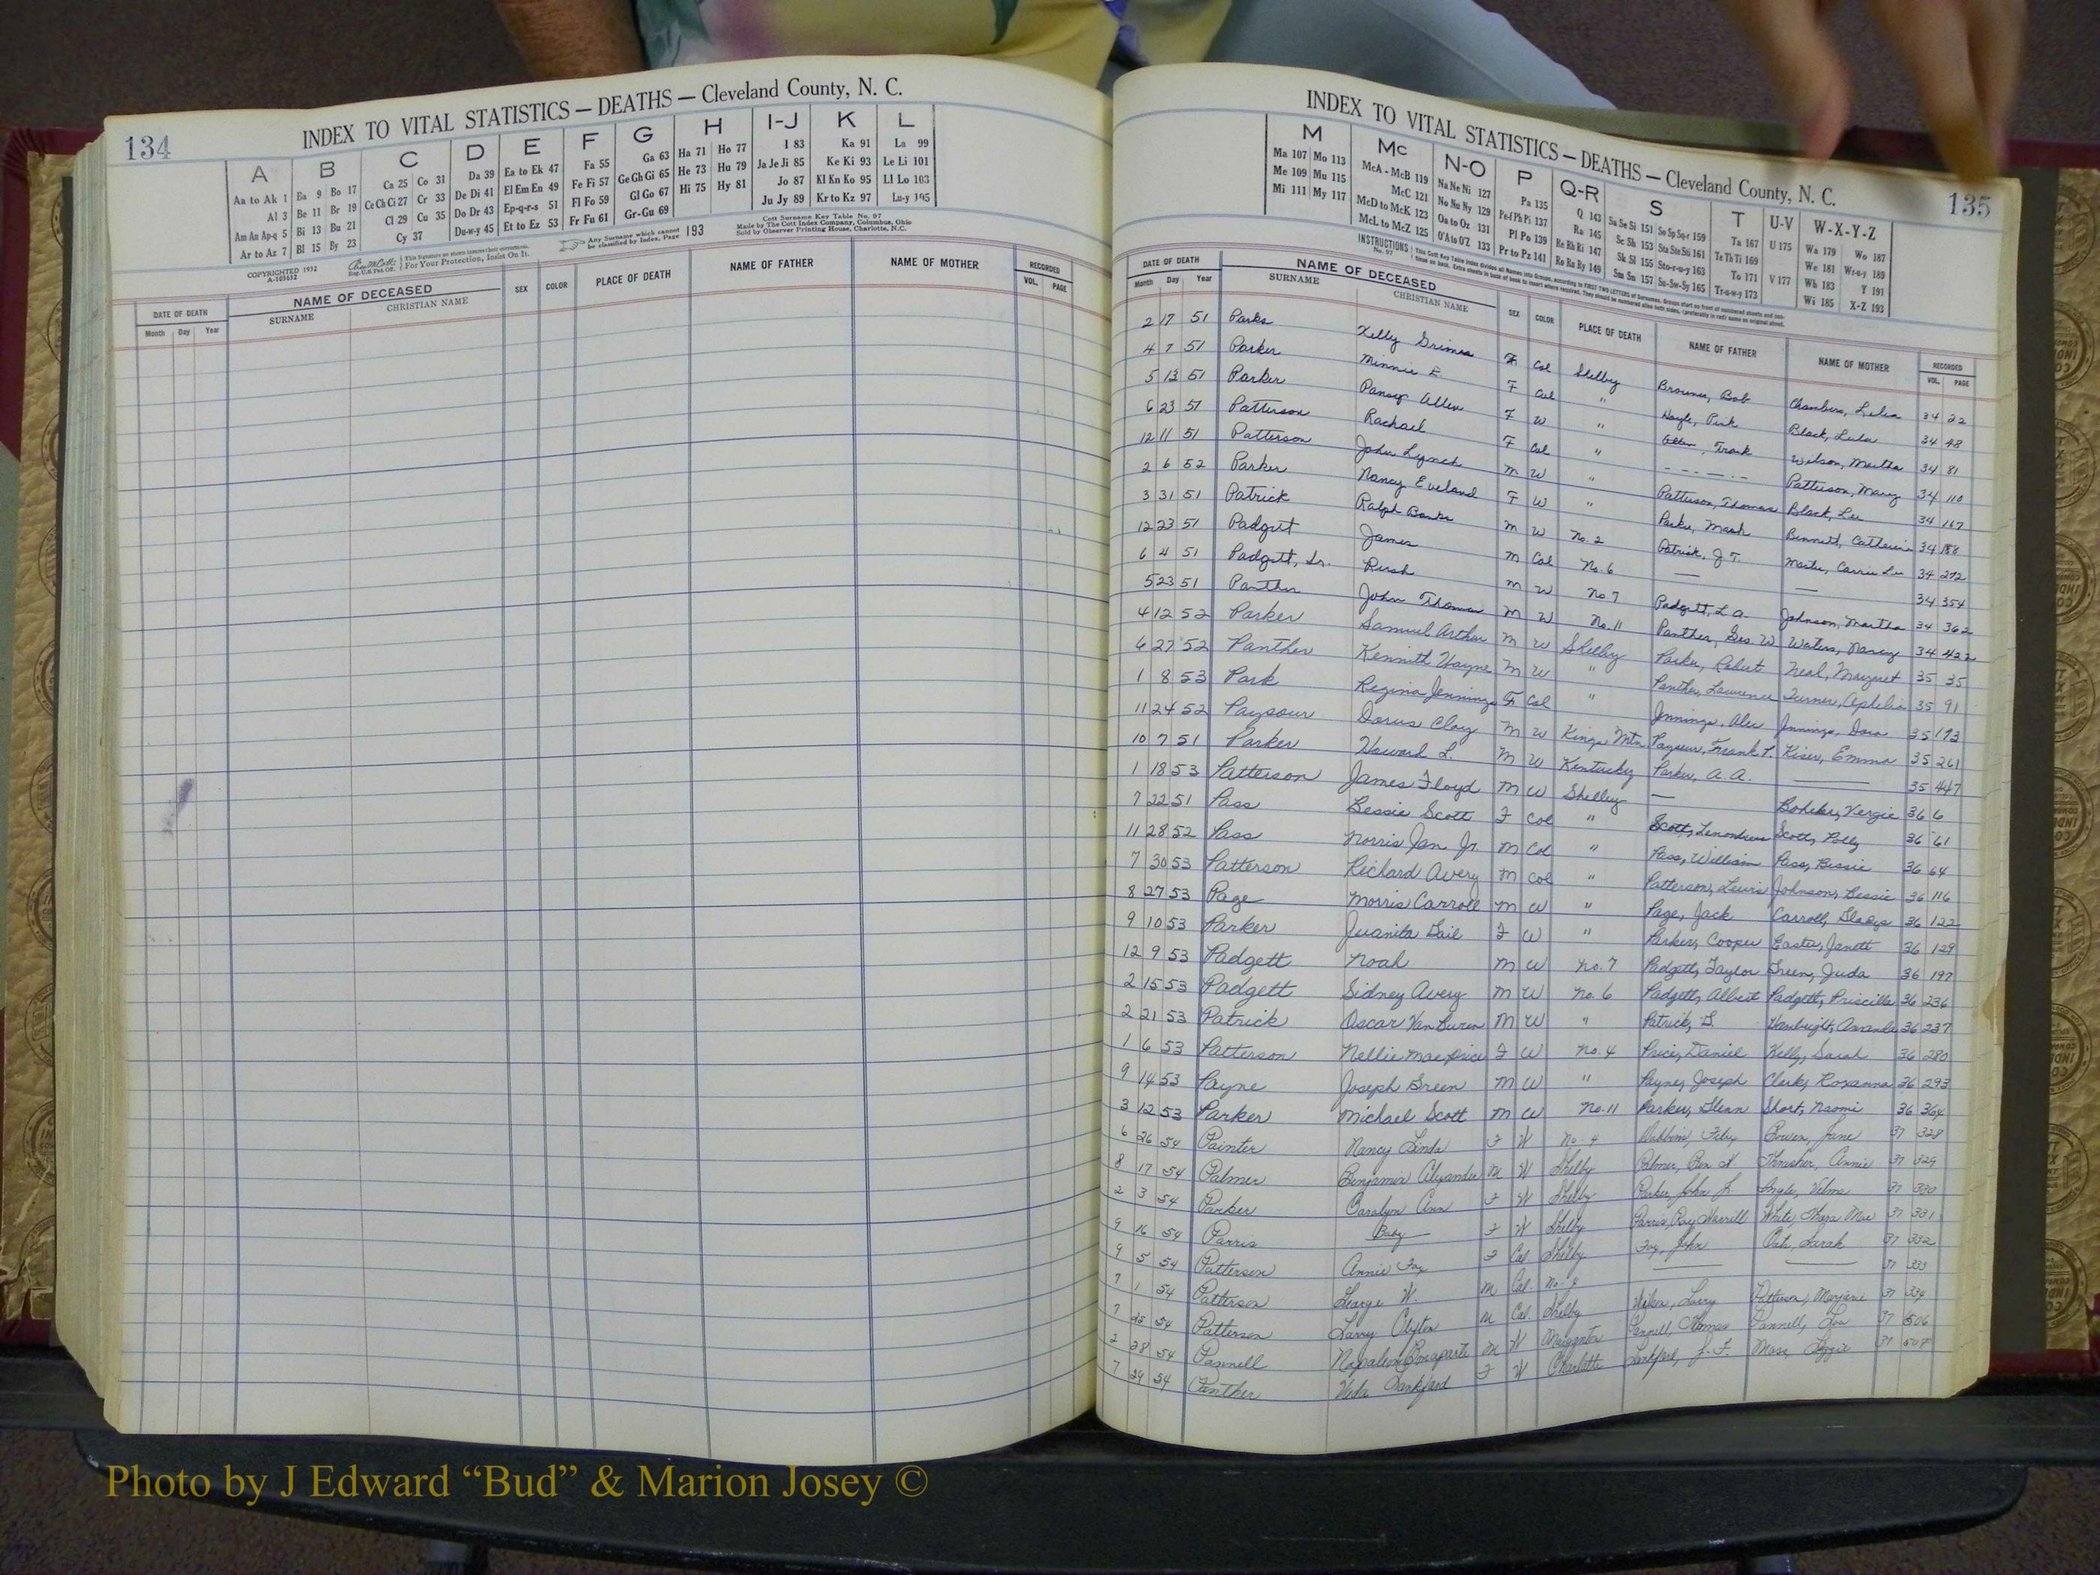 134
INDEX TO VITAL STATISTICS — DEATHS — Cleveland County, N. C.
A B C D E F G H I-J K L
Aa to Ak 1 Ba 9 Bo 17 Ca 25 Co 31 Da 39 Ea to Ek 47 Fa 55 Ga 63 Ha 71 Ho 77 I 83 Ka 91 La 99
Al 3 Be 11 Br 19 Ce Ch Ci 27 Cr 33 De Di 41 El Em En 49 Fe Fi 57 Ge Gh Gi 65 He 73 Hu 79 Ja Je Ji 85 Ke Ki 93 Le Li 101
Am An Ap-q 5 Bi 13 Bu 21 Cl 29 Cu 35 Do Dr 43 Ep-q-r-s 51 Fl Fo 59 Gl Go 67 Hi 75 Hy 81 Jo 87 Kl Kn Ko 95 Ll Lo 103
Ar to Az 7 Bl 15 By 23 Cy 37 Du-w-y 45 Et to Ez 53 Fr Fu 61 Gr-Gu 69 Ju Jy 89 Kr to Kz 97 Lu-y 105
COPYRIGHTED 1932
A-105632
For Your Protection, Insist On It.
Any Surname which cannot be classified by Index, Page 193
Cott Surname Key Table No. 97
Made by The Cott Index Company, Columbus, Ohio
Sold by Observer Printing House, Charlotte, N.C.
DATE OF DEATH NAME OF DECEASED SEX COLOR PLACE OF DEATH NAME OF FATHER NAME OF MOTHER RECORDED
Month Day Year SURNAME CHRISTIAN NAME VOL. PAGE
135
INDEX TO VITAL STATISTICS — DEATHS — Cleveland County, N. C.
M Mc N-O P Q-R S T U-V W-X-Y-Z
Ma 107 Mo 113 McA - McB 119 Na Ne Ni 127 Pa 135 Q 143 Sa Se Si 151 So Sp Sq-r 159 Ta 167 U 175 Wa 179 Wo 187
Me 109 Mu 115 McC 121 No Nu Ny 129 Pe-f Ph Pi 137 Ra 145 Sc Sh 153 Sta Ste Sti 161 Te Th Ti 169 We 181 Wr-u-y 189
Mi 111 My 117 McD to McK 123 Oa to Oz 131 Pl Po 139 Re Rh Ri 147 Sk Sl 155 Sto-r-u-y 163 To 171 V 177 Wh 183 Y 191
McL to McZ 125 O'A to O'Z 133 Pr to Pz 141 Ro Ru Ry 149 Sm Sn 157 Su-Sw-Sy 165 Tr-u-w-y 173 Wi 185 X-Z 193
DATE OF DEATH NAME OF DECEASED SEX COLOR PLACE OF DEATH NAME OF FATHER NAME OF MOTHER RECORDED
Month Day Year SURNAME CHRISTIAN NAME VOL. PAGE
2 17 51 Parks Kelly Grimes F Col Shelby Bob Chambers, Lelia 34 22
4 7 51 Parker Minnie E. F Col " Hoyle, Pink Black, Lula 34 48
5 13 51 Parker Pansy Allen F W " Allen, Frank Wilson, Martha 34 81
6 23 51 Patterson Rachael F Col " Patterson, Mary 34 110
12 11 51 Patterson John Lynch M W " Patterson, Thomas Black, Lu 34 167
2 6 52 Parker Nancy Eveland F W " Parker, Mack Bennett, Catherine 34 188
3 31 51 Patrick Ralph Banks M W No. 2 Patrick, J. T. Carrie Lee 34 272
12 23 51 Padgett James M Col No. 6 — — 34 354
6 4 51 Padgett, Sr. Rush M W No 7 Padgett, L. A. Johnson, Martha 34 362
5 23 51 Panther John Thomas M W No. 11 Panther, Geo. W Waters, Nancy 34 422
4 12 52 Parker Samuel Arthur M W Shelby Parker, Robert Neal, Margaret 35 35
6 27 52 Panther Kennith Wayne M W " Panther, Lawrence Turner, Aphelia 35 91
1 8 53 Park Regina Jennings F Col " Jennings, Alec Jennings, Dora 35 173
11 24 52 Paysour Dorus Clay M W Kings Mtn Paysour, Frank P. Kiser, Emma 35 261
10 7 51 Parker Howard L. M W Kentucky Parker, A. A. — 35 447
1 18 53 Patterson James Floyd M W Shelby — Vergie 36 6
7 22 51 Pass Bessie Scott F Col " Scott, Scott, Polly 36 61
11 28 52 Pass Norris Jan Jr. M Col " Pass, William Pass, Bessie 36 64
7 30 53 Patterson Richard Avery M Col " Patterson, Lewis Johnson, Bessie 36 116
8 27 53 Page Morris Carroll M W " Page, Jack Carroll, Gladys 36 122
9 10 53 Parker Juanita Gail F W " Parker, Cooper Easter, Janett 36 129
12 9 53 Padgett Noah M W No. 7 Padgett, Taylor Green, Juda 36 197
2 15 53 Padgett Sidney Avery M W No. 6 Padgett, Albert Padgett, Priscilla 36 236
2 21 53 Patrick Oscar Van Buren M W " Patrick, Amanda 36 237
1 6 53 Patterson Nellie Mae Price F W No. 4 Price, Daniel Kelly, Sarah 36 280
9 14 53 Payne Joseph Green M W " Payne, Joseph Clark, Roxanna 36 293
3 12 53 Parker Michael Scott M W No. 11 Parker, Glenn Short, Naomi 36 364
6 26 54 Painter Nancy Linda F W No. 4 Bowen, Jane 37 328
8 17 54 Palmer Benjamin Alexander M W Shelby Palmer, Ben Thrasher, Annie 37 329
2 3 54 Parker Caralyn Ann F W Shelby Parker, John L. Ingle, Velma 37 330
9 16 54 Parris Baby F W Shelby Parris, Ray Harrill White, Thera Mae 37 331
9 5 54 Patterson Annie Fay F Col. Shelby John Sarah 37 332
7 1 54 Patterson George W. M Col. — — 37 333
7 25 54 Patterson Larry Clyton M Col. Shelby Larry Patterson, Marjorie 37 334
2 28 54 Pannell Napoleon Bonaparte M W Morganton Pannell, Thomas Pannell, 37 506
7 29 54 Panther Veda Lankford F W Charlotte Lankford, J. F. Lizzie 37
Photo by J Edward “Bud” & Marion Josey ©